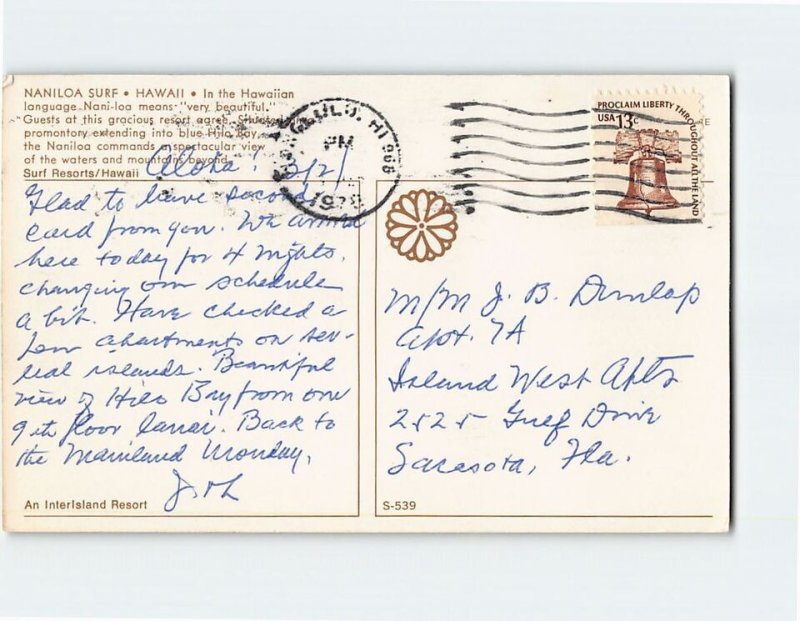 NANILOA SURF • HAWAII • In the Hawaiian
language Nani-loa means "very beautiful."
Guests at this gracious resort agree. Situated on
promontory extending into blue Hilo Bay,
the Naniloa commands a spectacular view
of the waters and mountains beyond.
Surf Resorts/Hawaii
Aloha! 3/21
Glad to have second
card from you. We arrived
here today for 4 nights,
changing our schedule
a bit. Have checked a
few apartments on sev-
eral islands. Beautiful
view of Hilo Bay from our
9th floor lanai. Back to
the Mainland Monday.
J + L
An InterIsland Resort
HONOLULU, HI 968
PM
PROCLAIM LIBERTY THROUGHOUT ALL THE LAND
USA 13c
M/M J. B. Dunlap
Apt. 7A
Island West Apts
2525 Gulf Drive
Sarasota, Fla.
S-539